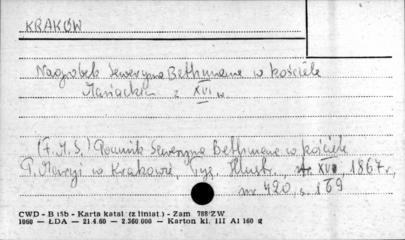 KRAKÓW
Nagrobek Seweryna Bethmana w kościele
Mariackim z XVI w
(F.M.S.) Pomnik Seweryna Bethmana w kościele
P. Maryi w Krakowie, Tyg. Illustr. XVI, 1867 r,
nr 420, s. 169
CWD - B 15b - Karta katal. (z liniat.) - Zam 788/ZW
1060 — ŁDA — 21.4.60 — 2.360.000 — Karton kl. III A1 160 g